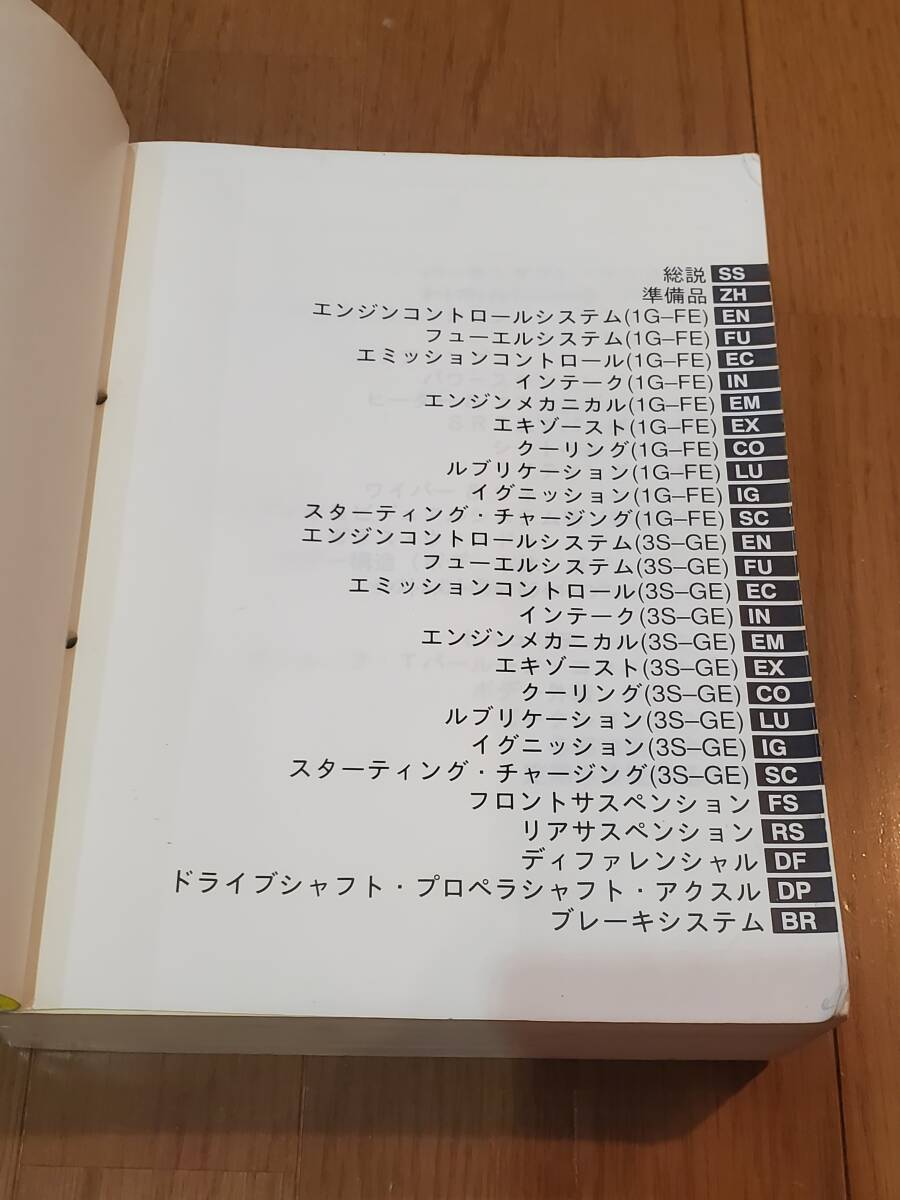 総説 SS
準備品 ZH
エンジンコントロールシステム(1G–FE) EN
フューエルシステム(1G–FE) FU
エミッションコントロール(1G–FE) EC
インテーク(1G–FE) IN
エンジンメカニカル(1G–FE) EM
エキゾースト(1G–FE) EX
クーリング(1G–FE) CO
ルブリケーション(1G–FE) LU
イグニッション(1G–FE) IG
スターティング・チャージング(1G–FE) SC
エンジンコントロールシステム(3S–GE) EN
フューエルシステム(3S–GE) FU
エミッションコントロール(3S–GE) EC
インテーク(3S–GE) IN
エンジンメカニカル(3S–GE) EM
エキゾースト(3S–GE) EX
クーリング(3S–GE) CO
ルブリケーション(3S–GE) LU
イグニッション(3S–GE) IG
スターティング・チャージング(3S–GE) SC
フロントサスペンション FS
リアサスペンション RS
ディファレンシャル DF
ドライブシャフト・プロペラシャフト・アクスル DP
ブレーキシステム BR